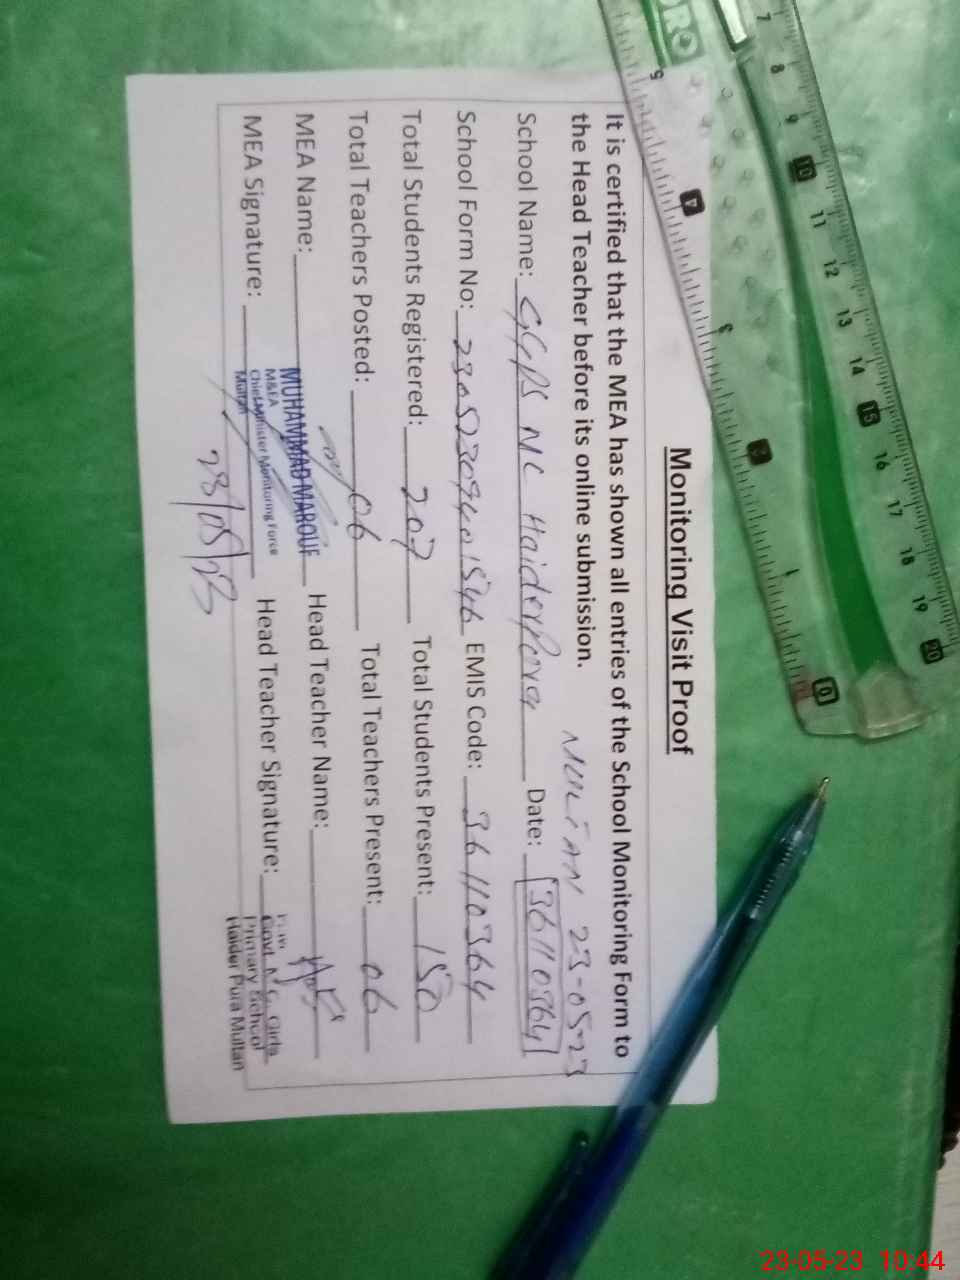 Monitoring Visit Proof
It is certified that the MEA has shown all entries of the School Monitoring Form to
the Head Teacher before its online submission.
MULTAN 23-05-23
School Name: GGPS MC Haiderpura Date: 36110364
School Form No: 2305230940 1546 EMIS Code: 36110364
Total Students Registered: 207 Total Students Present: 150
Total Teachers Posted: 06 Total Teachers Present: 06
MEA Name: MUHAMMAD MAROUF Head Teacher Name:
M&EA
Chief Minister Monitoring Force
Multan
MEA Signature: Head Teacher Signature:
Govt. M.C. Girls
Primary School
Haider Pura Multan
23/05/23
7 8 9 10 11 12 13 14 15 16 17 18 19 20
5 4 3 2 1 0
23-05-23 10:44